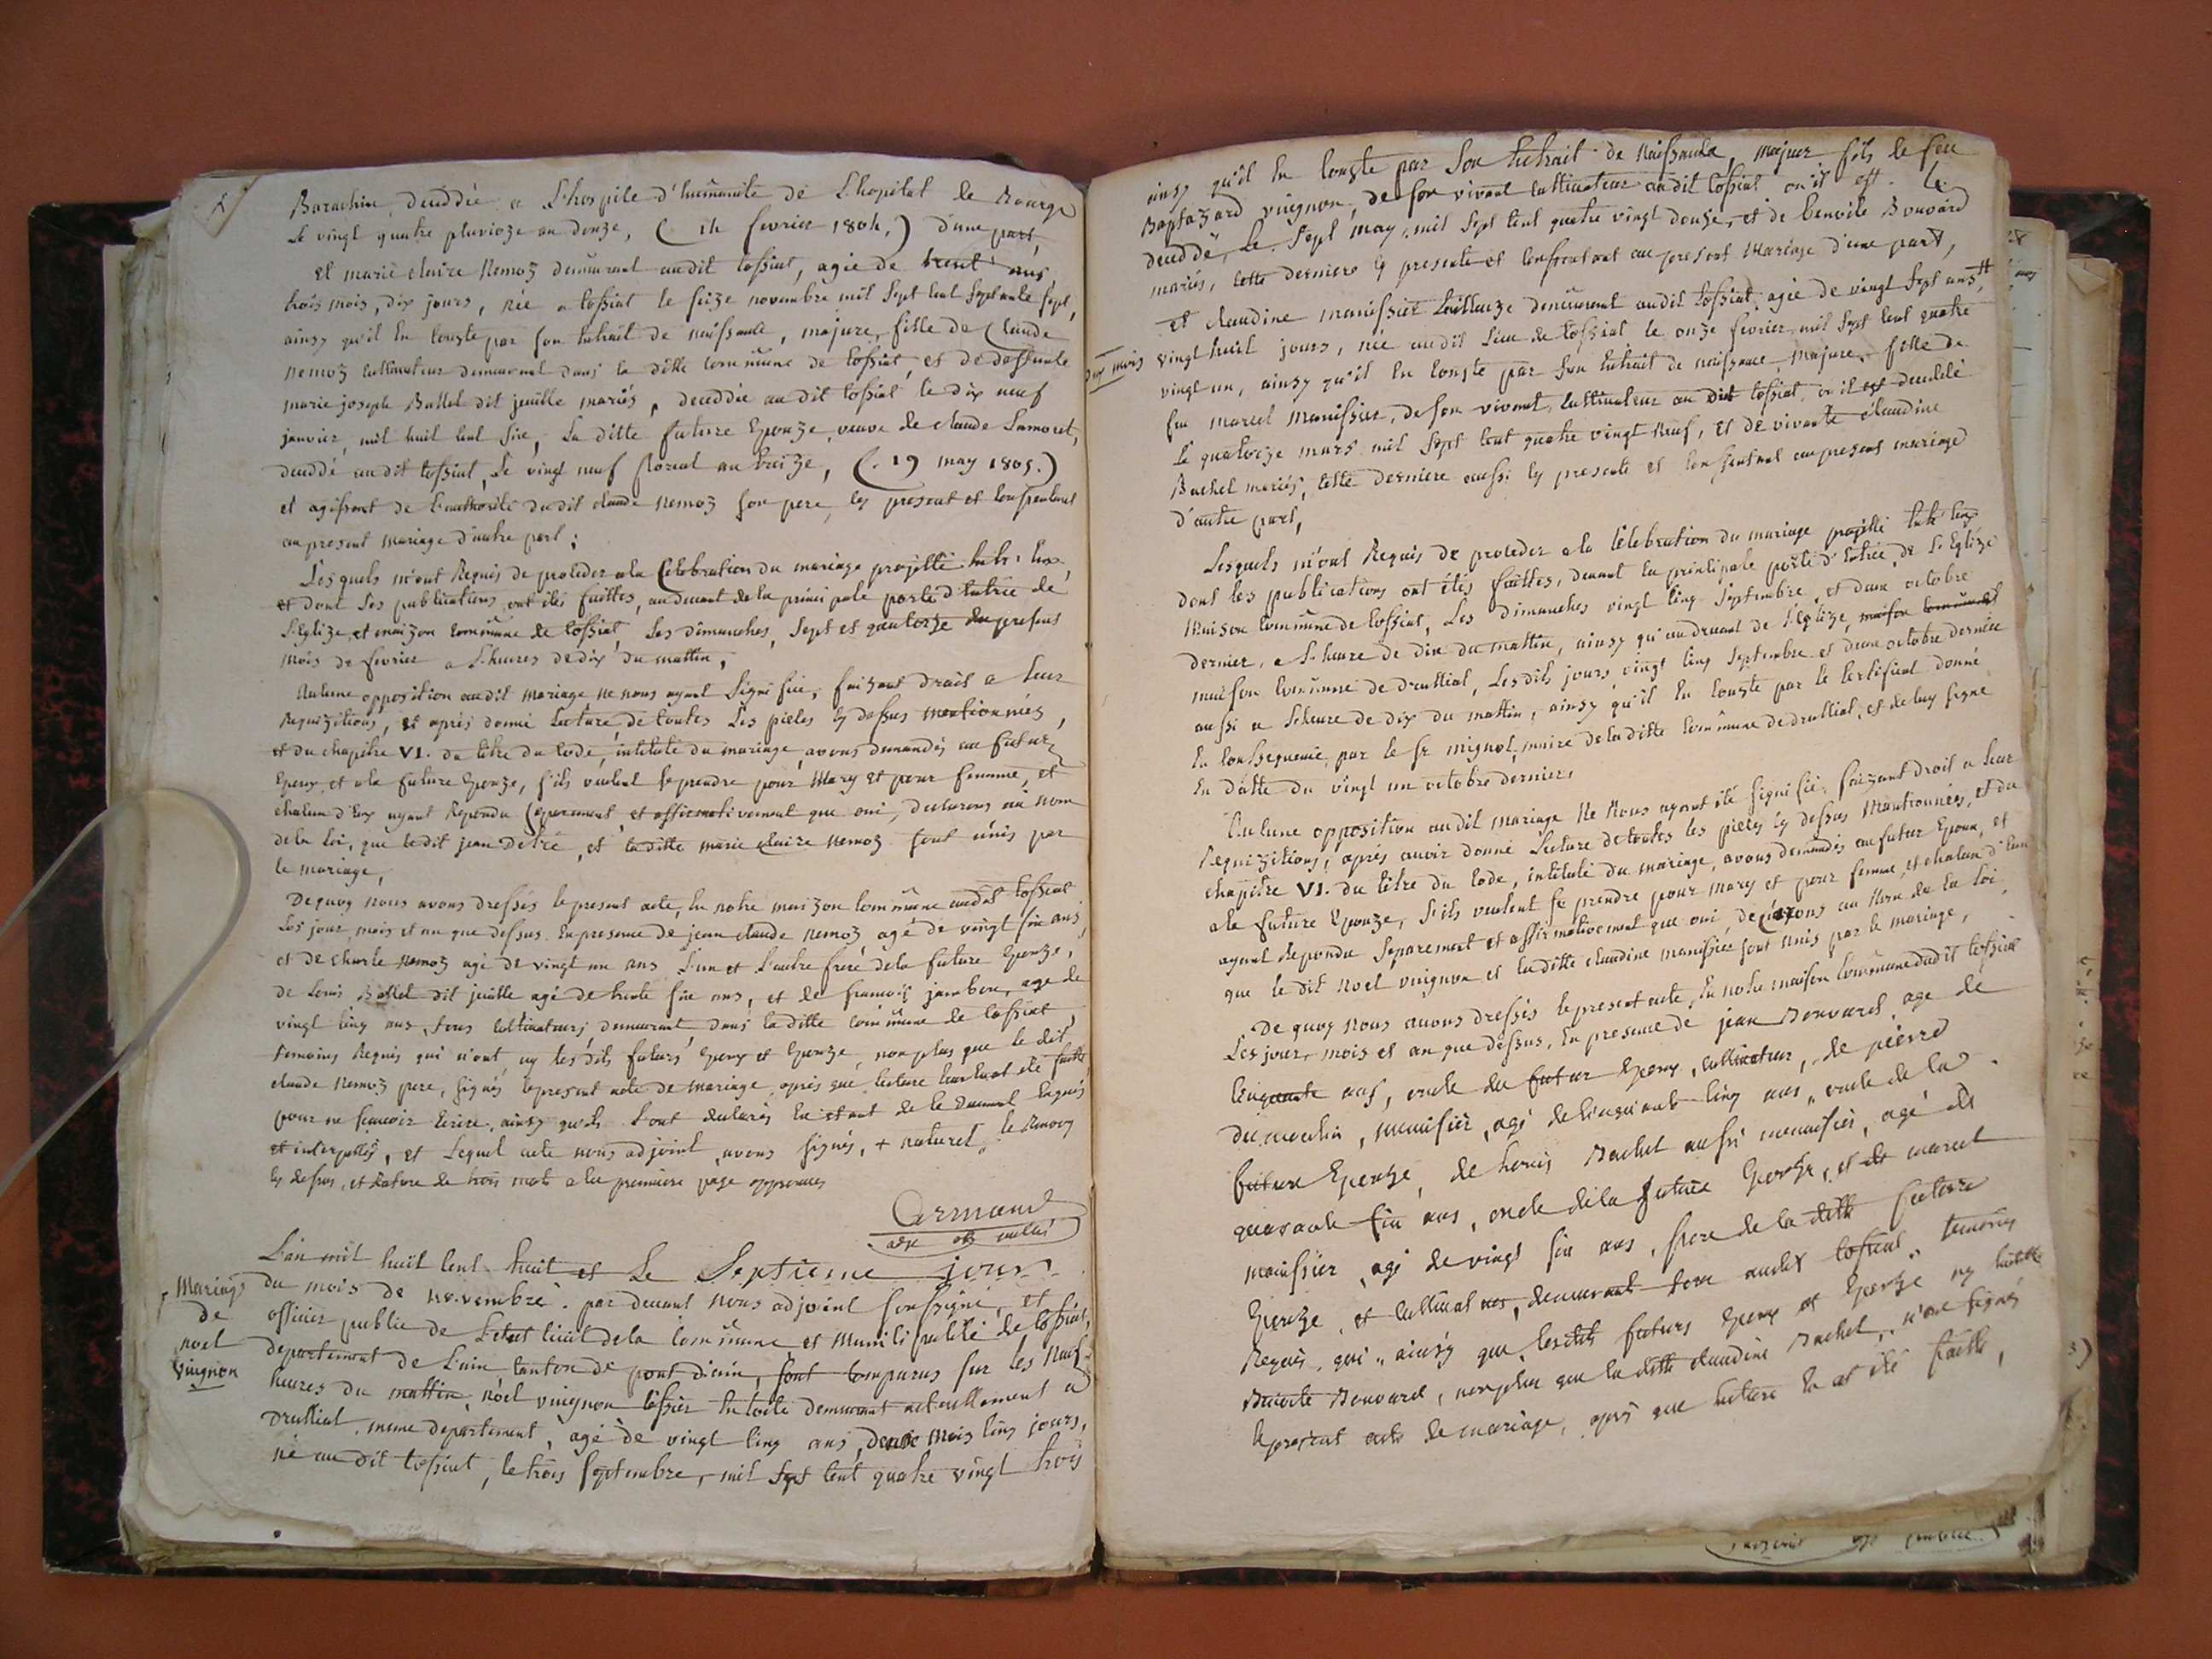 Barachin, deceddée a L'hospice d'humanité de L'hopital de Bourg
Le vingt quatre pluvioze an douze, ( 14 fevrier 1804.) d'une part,
et marie claire Nemoz demeurant audit tossiat, agée de trente ans
trois mois, dix jours, née a tossiat le seize novembre mil sept cent septante sept,
ainsy qu'il en conste par son Extrait de naissance, majure, fille de Claude
Nemoz cultivateur demeurant dans la ditte commune de tossiat, et de deffunte
marie joseph Ballet dit jeuille mariés, deceddée au dit tossiat le dix neuf
janvier mil huit cent six, La ditte future Epouze, veuve de claude Lamoret,
deceddé audit tossiat, Le vingt neuf floreal an treize, (. 19 may 1805.)
et agissant de L'authorité dudit claude Nemoz son pere, cy present et consentant
au present mariage d'autre part;
Lesquels m'ont Requis de proceder a la Celebration du mariage projetté entr'eux,
et dont les publications ont étés faittes, au devant de la principale porte d'entrée de
L'Eglize et maizon commune de tossiat, Les dimanches, sept et quatorze du present
mois de fevrier a L'heures de dix du mattin,
Aucune opposition audit mariage ne nous ayant signifiée, faizant droit a leur
Requizitions, et aprés donné Lecture de toutes Les pieces cy dessus mentionnées,
et du chapitre VI. du titre du code, intitulé du mariage, avons demandés au futur
Epoux et a la future Epouze, s'ils veulent se prendre pour Mary et pour femme, et
chacun d'Eux ayant Repondu separement et affirmativement que oui, declarons au nom
de la loi, que le dit jean et la ditte marie claire Nemoz sont unis par
le mariage,
De quoy nous avons dressés le present acte, En notre maizon commune audit tossiat
Les jour, mois et an que dessus. En presence de jean claude Nemoz agé de vingt six ans
et de charle Nemoz agé de vingt un ans L'un et L'autre frere de la future Epouze,
de Louis Ballet dit jeuille agé de trente six ans, et de francois jambon, agé de
vingt cinq ans, tous cultivateurs demeurant dans la ditte commune de tossiat,
temoins Requis qui n'ont, ny les dits futurs Epoux et Epouze, non plus que le dit
claude Nemoz pere, signés le present acte de mariage, aprés que lecture leur en at été faitte
pour ne scavoir Ecrire, ainsy qu'ils L'ont declarés En etant de le Enquis
et interpellés, et Lequel acte nous adjoint avons signés, + naturel, le Renvoy
cy dessus, et Rature de trois mots a la premiere page approuvés
Armand
adj
Mariage
de
noel
vuignon
L'an mil huit cent huit et Le Septieme jour
du mois de novembre. par devant nous adjoint soussigné, et
officier public de L'etat civil de la commune et Municipalité de tossiat,
departement de L'ain, canton de pont d'ain, sont comparus sur les Neuf
heures du mattin, noel vuignon tissier En toile demeurant actuellement a
Druilliat, meme departement, agé de vingt cinq ans, deux mois cinq jours,
né au dit tossiat, le trois septembre, mil sept cent quatre vingt trois
ainsy qu'il En conste par son Extrait de Naissance, majeur fils de feu
Baptazard vuignon, de son vivant cultivateur audit tossiat ou il est
deceddé, Le sept may, mil sept cent quatre vingt douze, et de benoite Bouvard
mariés, cette derniere cy presente et consentant au present Mariage d'une part,
et claudine manissier tailleuze demeurant audit tossiat, agée de vingt sept ans,
dix mois
vingt huit jours, née audit Lieu de tossiat le onze fevrier mil sept cent quatre
vingt un, ainsy qu'il En conste par son Extrait de naissance, Majure, fille de
feu marcel Manissier, de son vivant, cultivateur au dit tossiat, ou il est deceddé
Le quatorze mars mil sept cent quatre vingt Neuf, et de vivante claudine
Bachet mariés, cette derniere aussi cy presente et consentant au present mariage
d'autre part,
Lesquels m'ont Requis de proceder a la Célebration du mariage projetté entr'eux
dont les publications ont étés faittes, devant la principale porte d'entrée de L'Eglize
Maison commune de tossiat, Les dimanches vingt cinq septembre, et deux octobre
dernier, a L'heure de dix du mattin, ainsy qu'au devant de l'Eglize, maison commune
maison commune de druilliat, Les dits jours vingt cinq septembre et deux octobre dernier
aussi a L'heure de dix du mattin, ainsy qu'il En conste par le certificat donné
En consequence, par le sr mignot, maire de la ditte commune de druilliat, et de luy signé
En datte du vingt un octobre dernier,
Aucune opposition audit mariage Ne Nous ayant été signifiée, faizant droit a leur
Requizitions, aprés avoir donné Lecture de toutes les pieces cy dessus Mentionnées, et du
chapitre VI. du titre du code, intitulé du mariage, avons demandés au futur Epoux, et
a la future Epouze, s'ils veulent se prendre pour mary et pour femme, et chacun d'Eux
ayant Repondu separement et affirmativement que oui, declarons au Nom de la loi,
que le dit noel vuignon et la ditte claudine manissier sont unis par le mariage,
De quoy nous avons dressés le present acte, En notre maison commune dudit tossiat
Les jour, mois et an que dessus, En presence de jean Bouvard, agé de
cinquante ans, oncle du futur Epoux, cultivateur, de pierre
Dumoulin, menusier, agé de cinquante cinq ans, oncle de la
future Epouze, de Bachet aussi menusier, agé de
quarante six ans, oncle de la future Epouze, et de marcel
manissier, agé de vingt six ans, frere de la ditte future
Epouze, et cultivateur, demeurant tous audit tossiat, temoins
Requis, qui ainsy que les dits futurs Epoux et Epouze ny
Benoite Bouvard, non plus que la ditte claudine Bachet, n'ont signés
le present acte de mariage, aprés que lecture En at été faitte,